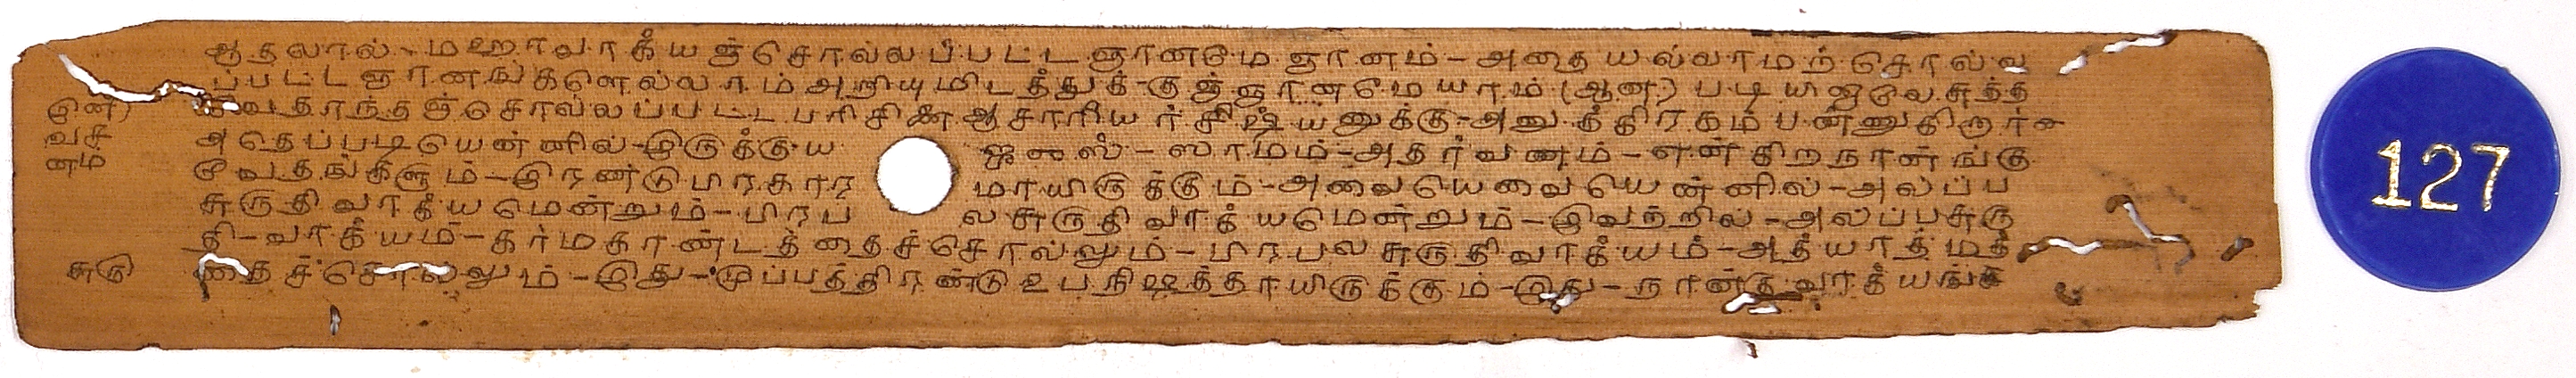 ஆதலால்-மஹாவாக்யஞ்சொல்லப்பட்டஞானமேஞானம்-அதையல்லாமற்சொல்ல
ப்பட்டஞானங்களெல்லாம்அறியுமிடத்துக்-குஞ்ஞானமேயாம்(ஆன) படியினாலேசுத்த
வேதாந்தஞ்சொல்லப்பட்டபரிசினைஆசாரியர்சிஷ்யனுக்கு-அனுக்கிரகம்பண்ணுகிறார்
அதெப்படியென்னில்-இருக்குய ஜுஸ்-ஸாமம்-அதர்வணம்-என்கிறநான்ங்கு
வேதங்களும்-இரண்டுபிரகார மாயிருக்கும்-அவையெவையென்னில்-அல்ப்ப
சுருதிவாக்யமென்றும்-பிரப லசுருதிவாக்யமென்றும்-இவற்றில்-அல்ப்பசுரு
தி-வாக்யம்-கர்மகாண்டத்தைச்சொல்லும்-பிரபலசுருதிவாக்யம்-ஆத்யாத்மத்
தைச்சொல்லும்-இது-முப்பத்திரண்டுஉபநிஷத்தாயிருக்கும்-இது-நான்குவாக்யங்க
சுரு
127